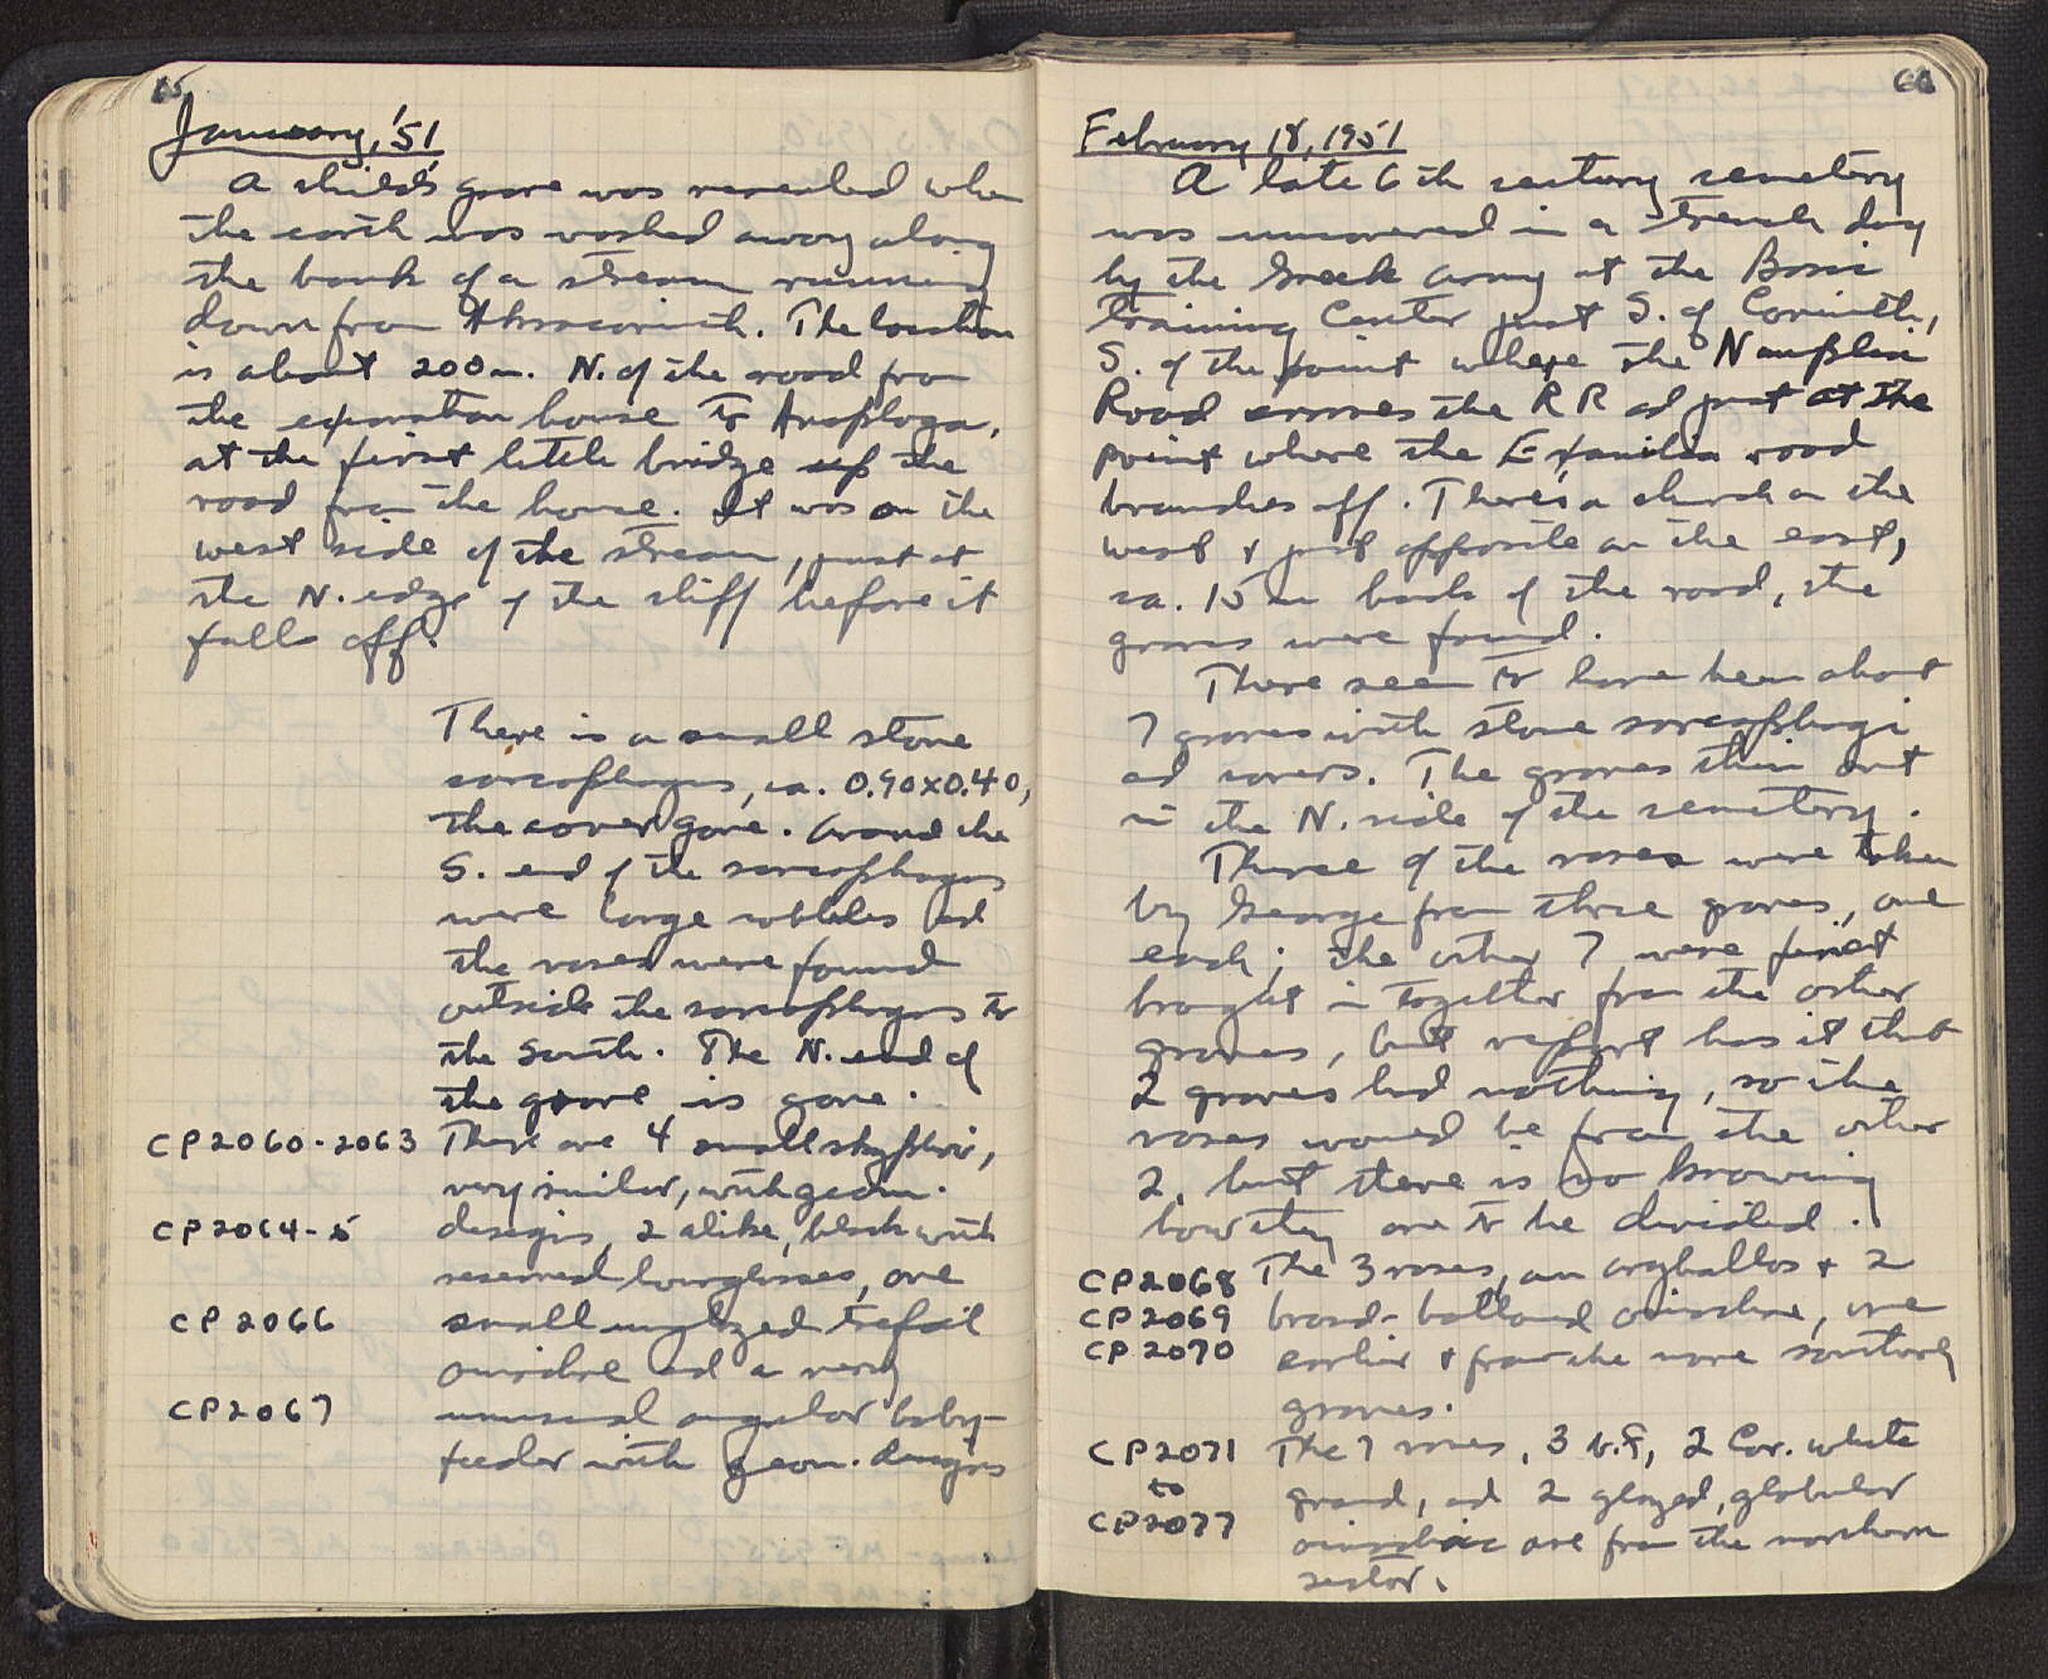 65
January, '51
A child's grave was revealed when
the earth was washed away along
the bank of a stream running
down from Akrocorinth. The location
is about 200 m. N. of the road from
the excavation house to Anaploga,
at the first little bridge up the
road from the house. It was on the
west side of the stream, just at
the N. edge of the cliff before it
falls off.
There is a small stone
sarcophagus, ca. 0.90x0.40,
the cover gone. Around the
S. end of the sarcophagus
were large cobbles and
the vases were found
outside the sarcophagus to
the south. The N. end of
the grave is gone.
CP2060-2063 There are 4 small skyphoi,
very similar, with geom.
CP2064-5 designs, 2 alike, black with
reserved hourglasses, one
CP 2066 small unglazed trefoil
oinochoe and a very
CP2067 unusual angular baby-
feeder with geom. designs
66
February 18, 1951
A late 6th century cemetery
was uncovered in a trench dug
by the Greek army at the Basic
Training Center just S. of Corinth,
S. of the point where the Nauplia
Road crosses the RR and just at the
point where the Examilia road
branches off. There's a church on the
west & just opposite on the east,
ca. 15 m back of the road, the
graves were found.
There seem to have been about
7 graves with stone sarcophagi
and covers. The graves thin out
in the N. side of the cemetery.
Three of the vases were taken
by George from three graves, one
each; the other 7 were first
brought in together from the other
graves, but report has it that
2 graves had nothing, so the
vases would be from the other
2, but there is no knowing
how they are to be divided.
CP2068 The 3 vases, an aryballos & 2
CP2069 broad-bottomed oinochoe, are
CP 2070 earlier & from the more southerly
graves.
CP2071 The 7 vases, 3 b.f., 2 Cor. white
to ground, and 2 glazed, globular
CP2077 oinochoai are from the northern
sector.